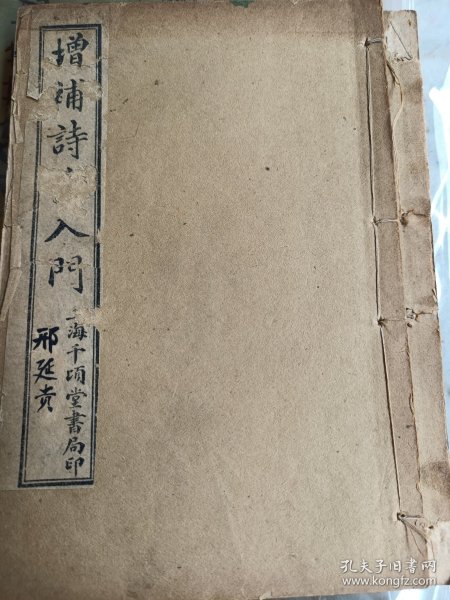 增補詩
入門
海千頃堂書局印
邢延贵
孔夫子旧书网
www.kongfz.com